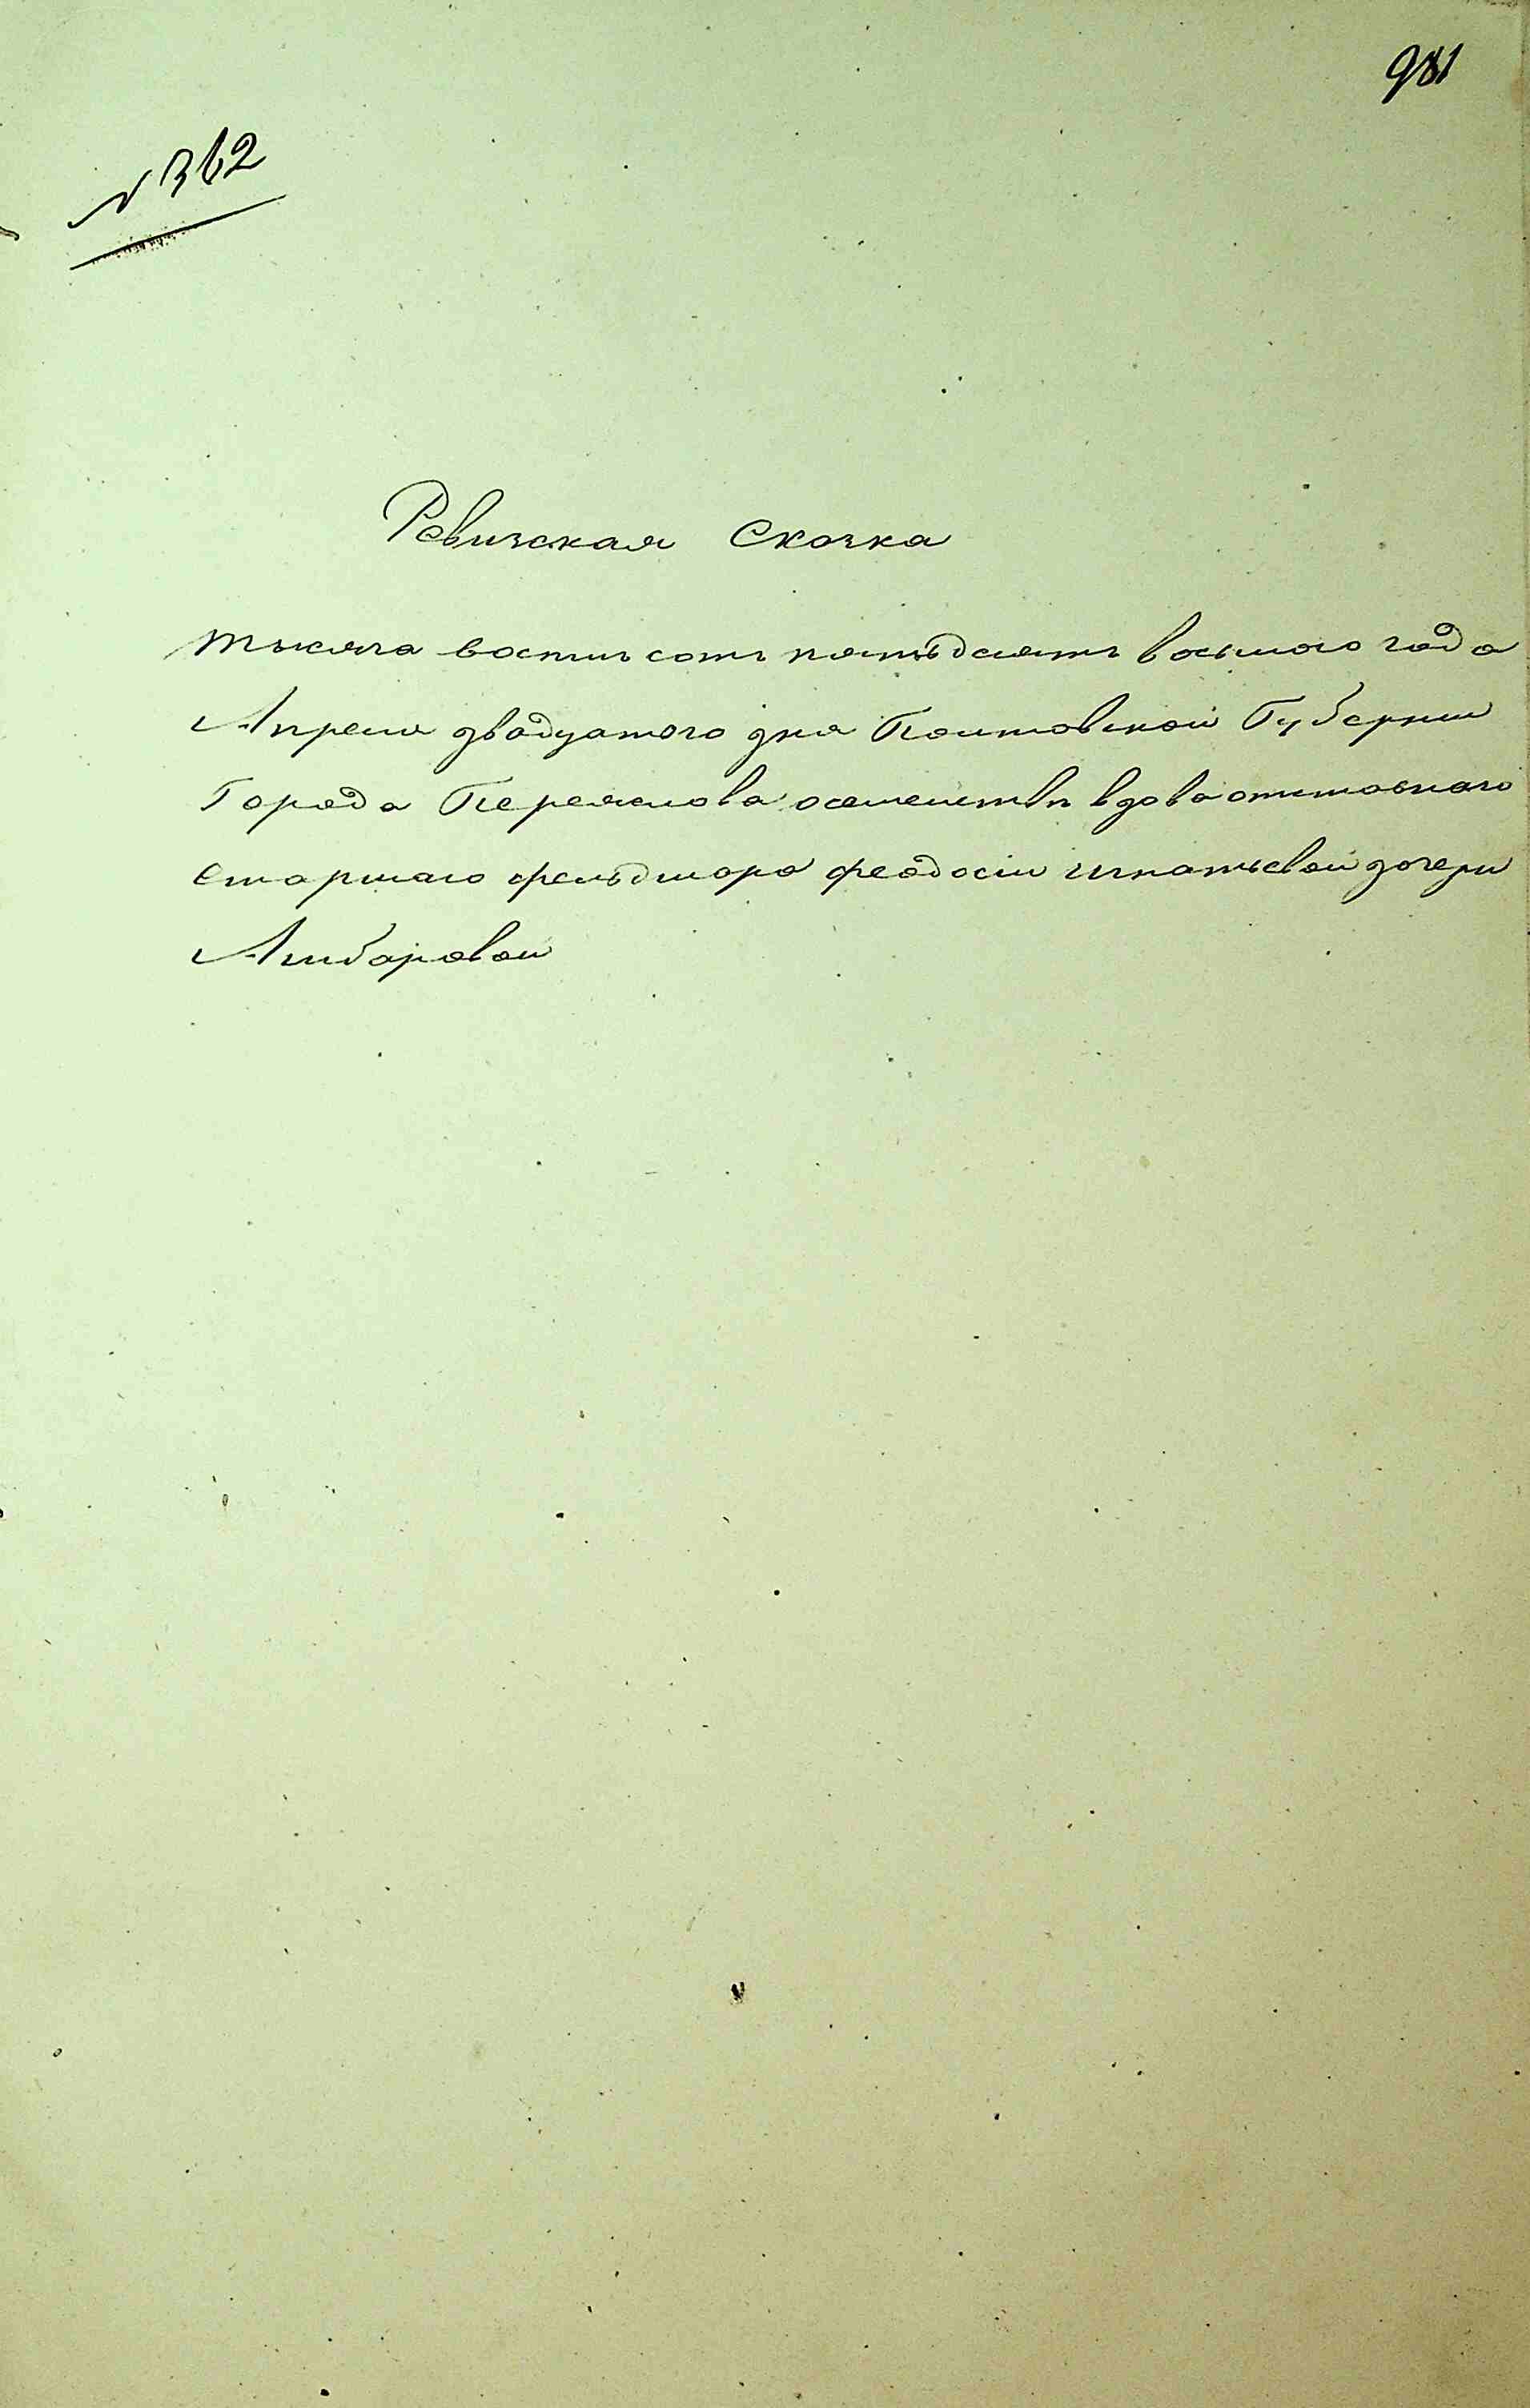 981
№ 362
Ревизская Сказка
тысяча востми сотъ пятьдесятъ восьмого года
Апреля двадцатого дня Полтовской Губернии
Города Переяслова осемействѣ вдовы отставнаго
Старшаго фельдшара феодосіи игнатьевой дочери
Амбаровой